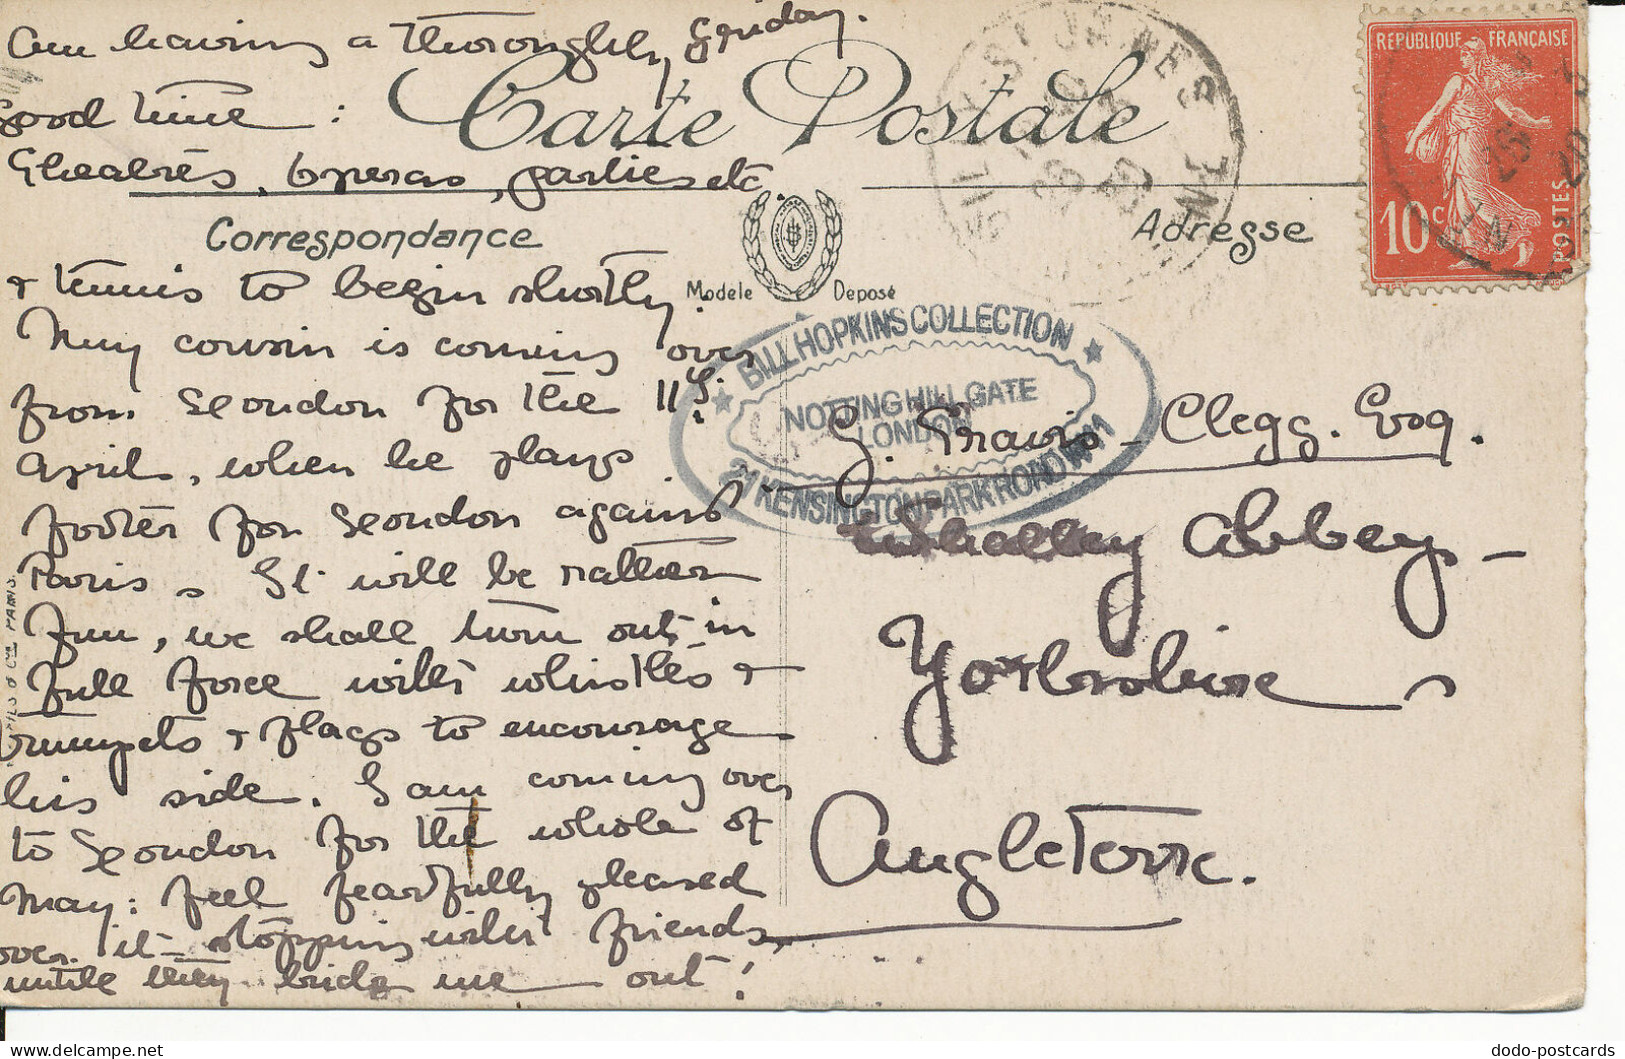 Friday.
Am having a thoroughly
Good time:
Carte Postale
Theatres, operas, parties etc.
Correspondance
Adresse
Modele Deposé
REPUBLIQUE FRANÇAISE
10 c
POSTES
& tennis to begin shortly.
My cousin is coming over
from London for the 11th
April, when he plays
footer for London against
Paris. It will be rather
fun, we shall turn out in
full force with whistles &
trumpets & flags to encourage
his side. I am coming over
to London for the whole of
May: feel fearfully pleased
over it - stopping with friends,
until they bride me out!
BILL HOPKINS COLLECTION
NOTTING HILL GATE
LONDON
21 KENSINGTON PARK ROAD W11
G. Travis-Clegg. Esq.
Whalley Abbey -
Yorkshire
Angleterre.
PARIS
dodo-postcards